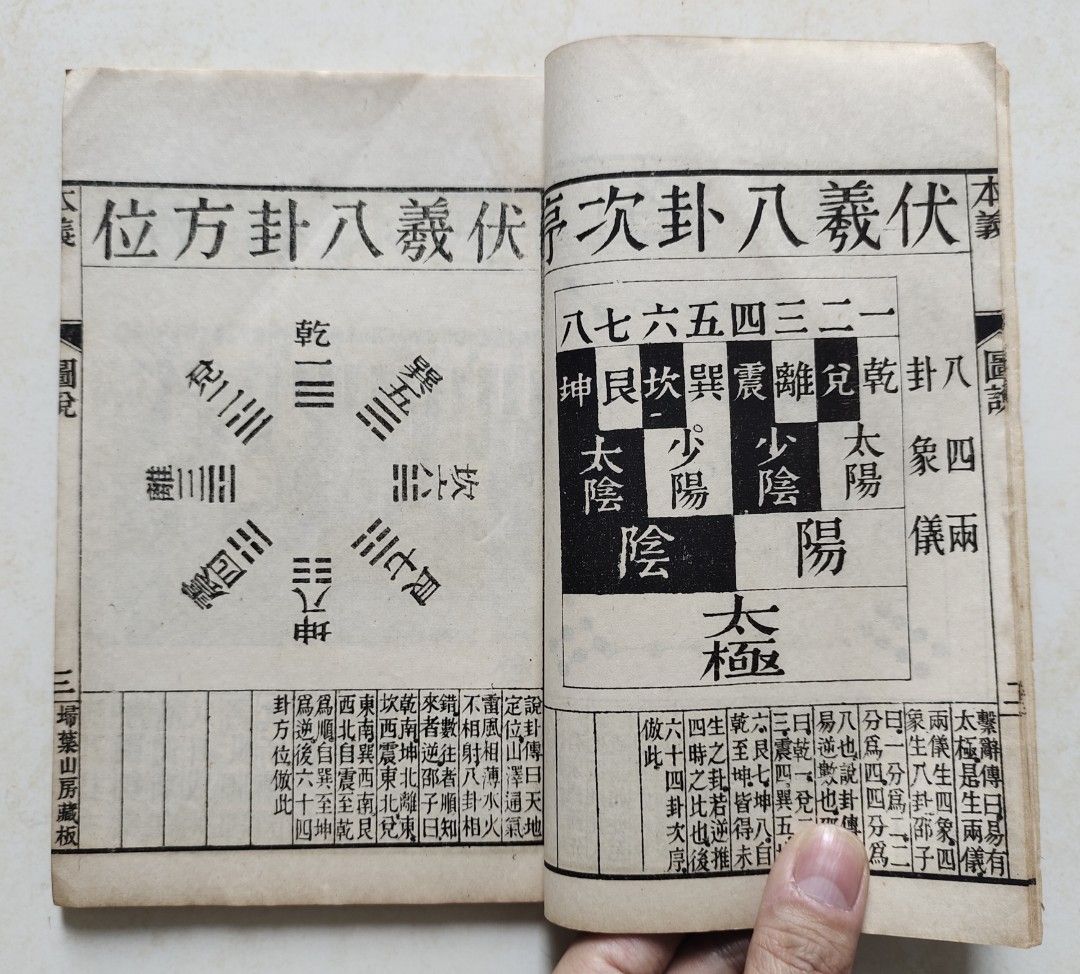 本義
圖說
二
伏羲八卦次序
一二三四五六七八
乾兌離震巽坎艮坤
太陽 少陰 少陽 太陰
陽 陰
太極
八卦
四象
兩儀
繫辭傳曰易有
太極是生兩儀
兩儀生四象四
象生八卦邵子
曰一分爲二二
分爲四四分爲
八也說卦傳
易逆數也
曰乾一兌
三震四巽五
六艮七坤八自
乾至坤皆得未
生之卦若逆推
四時之比也後
六十四卦次序
倣此
伏羲八卦方位
乾一
兌二
離三
震四
巽五
坎六
艮七
坤八
說卦傳曰天地
定位山澤通氣
雷風相薄水火
不相射八卦相
錯數往者順知
來者逆邵子曰
乾南坤北離東
坎西震東北兌
東南巽西南艮
西北自震至乾
爲順自巽至坤
爲逆後六十四
卦方位倣此
本義
圖說
三
埽葉山房藏板